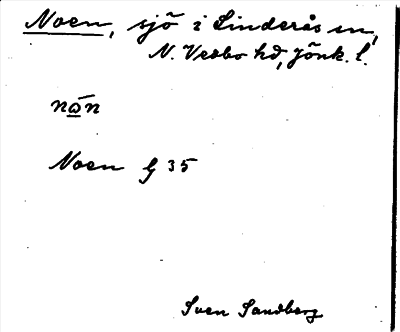 Noen, sjö i Linderås sn,
N. Vedbo hd, Jönk. l.
nōn
Noen G 35
Sven Sandberg